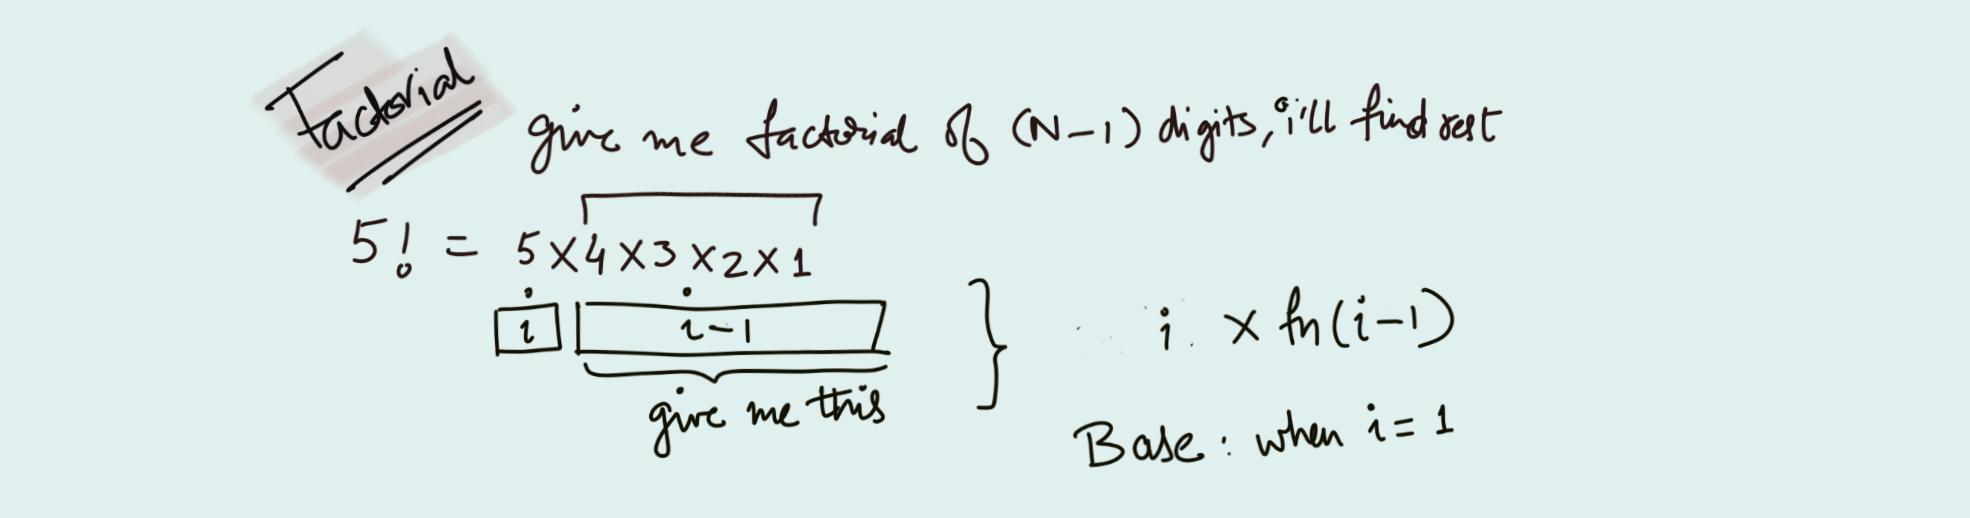 Factorial
give me factorial of (N-1) digits, i'll find rest
5! = 5×4×3×2×1
i i-1
give me this
i × fn(i-1)
Base: when i=1